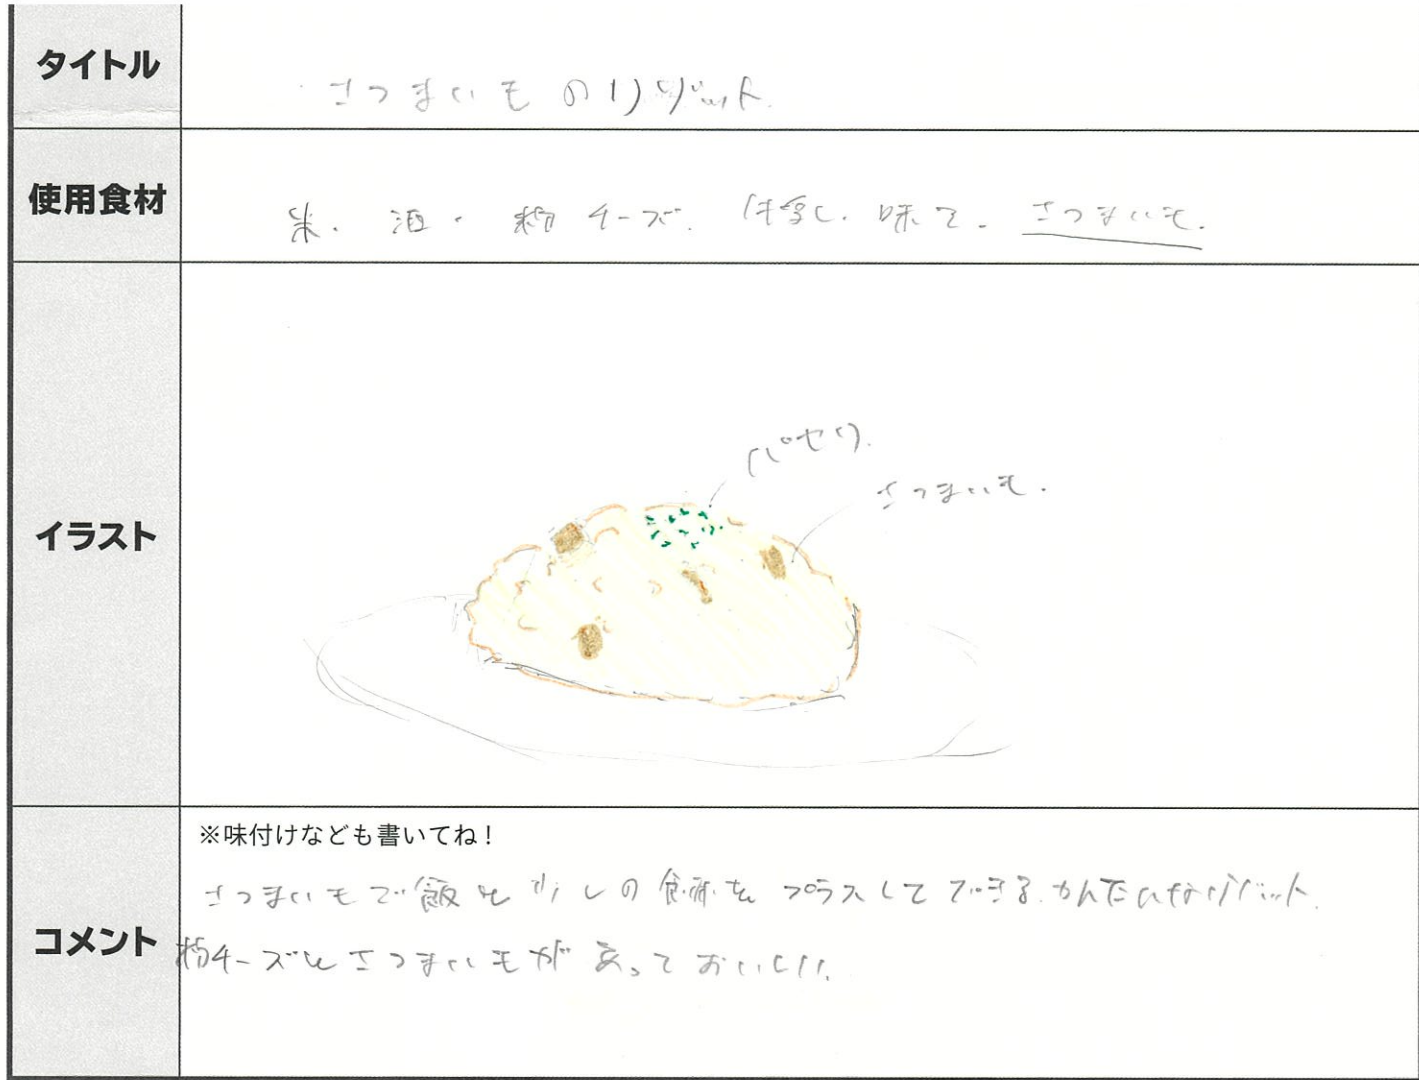 タイトル
さつまいものリゾット
使用食材
米・酒・粉チーズ. 牛乳. 味で. さつまいも.
イラスト
パセリ.
さつまいも.
コメント
※味付けなども書いてね!
さつまいもご飯に少しの食材をプラスしてできるかんたんなリゾット.
粉チーズとさつまいもがあっておいしい.